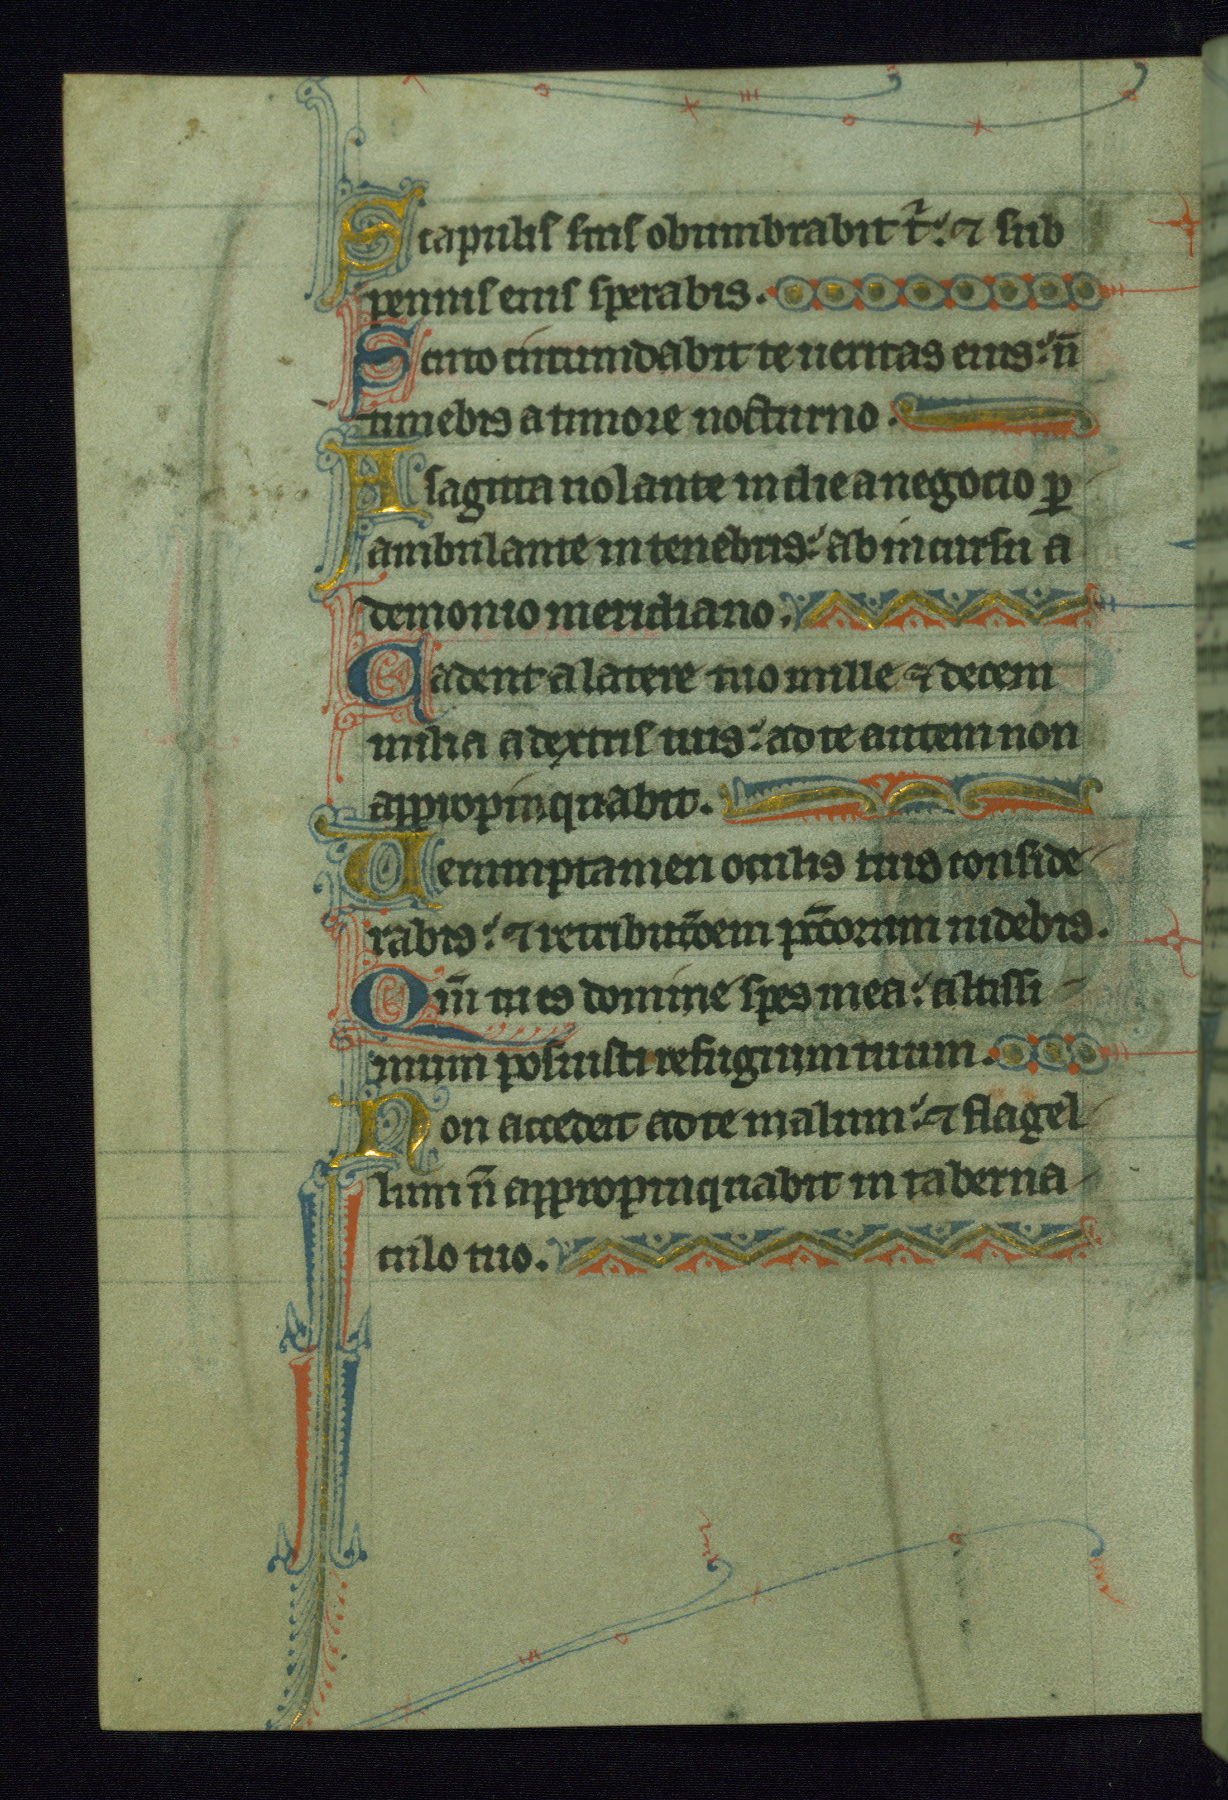 Scapulis suis obumbrabit t̄: ⁊ sub
pennis eius sperabis.
Scuto circumdabit te ueritas eius: n̄
timebis a timore nocturno.
A sagitta uolante in die a negocio ꝑ
ambulante in tenebris: ab incursu ⁊
demonio meridiano.
Cadent a latere tuo mille ⁊ decem
milia a dextris tuis: ad te autem non
appropinquabit.
Uerumptamen oculis tuis conside
rabis: ⁊ retributōem pcc̄orum uidebis.
Qm̄ tu es domine spes mea: altissi
mum posuisti refugium tuum.
Non accedet ad te malum: ⁊ flagel
lum n̄ appropinquabit in taberna
culo tuo.